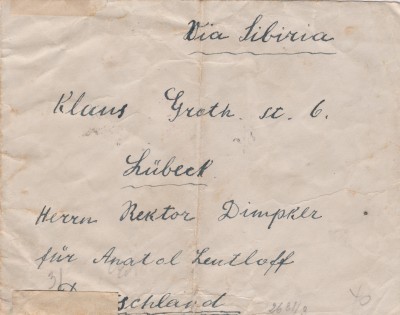 Via Sibiria
Klaus Groth. st. 6.
Lübeck.
Herrn Rektor Dimpker
für Anatol Leutloff
schland